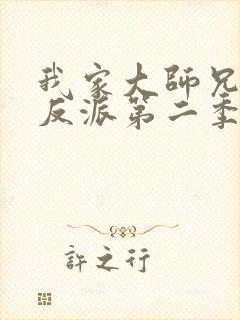 我家大師兄
反派第二季
許之行